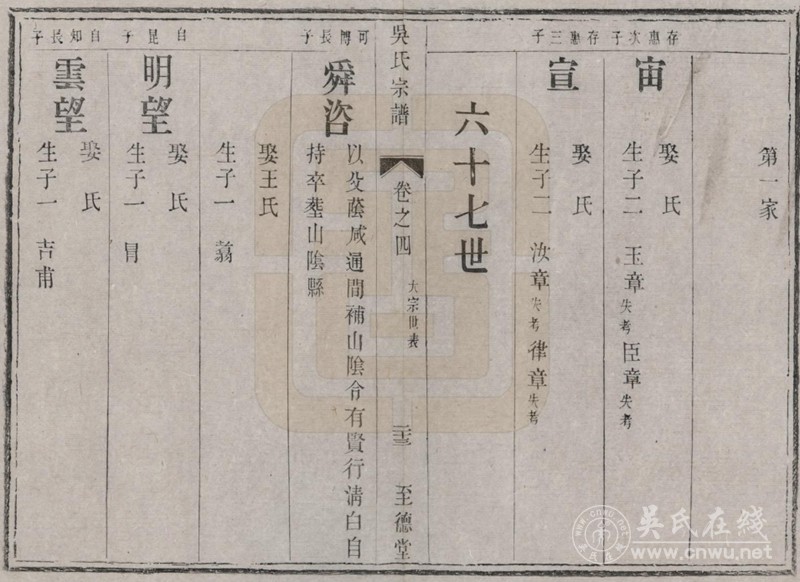 第一家
存惠次子
宙
娶 氏
生子二 玉章失考 臣章失考
存惠三子
宣
娶 氏
生子二 汝章失考 律章失考
六十七世
吳氏宗譜
卷之四
大宗世表
二十三
至德堂
可博長子
舜咨
以父蔭咸通間補山陰令有賢行清白自
持卒塟山陰縣
娶王氏
生子一 翥
自昆子
明望
娶 氏
生子一 冐
自知長子
雲望
娶 氏
生子一 吉甫
吴氏在线
www.cnwu.net